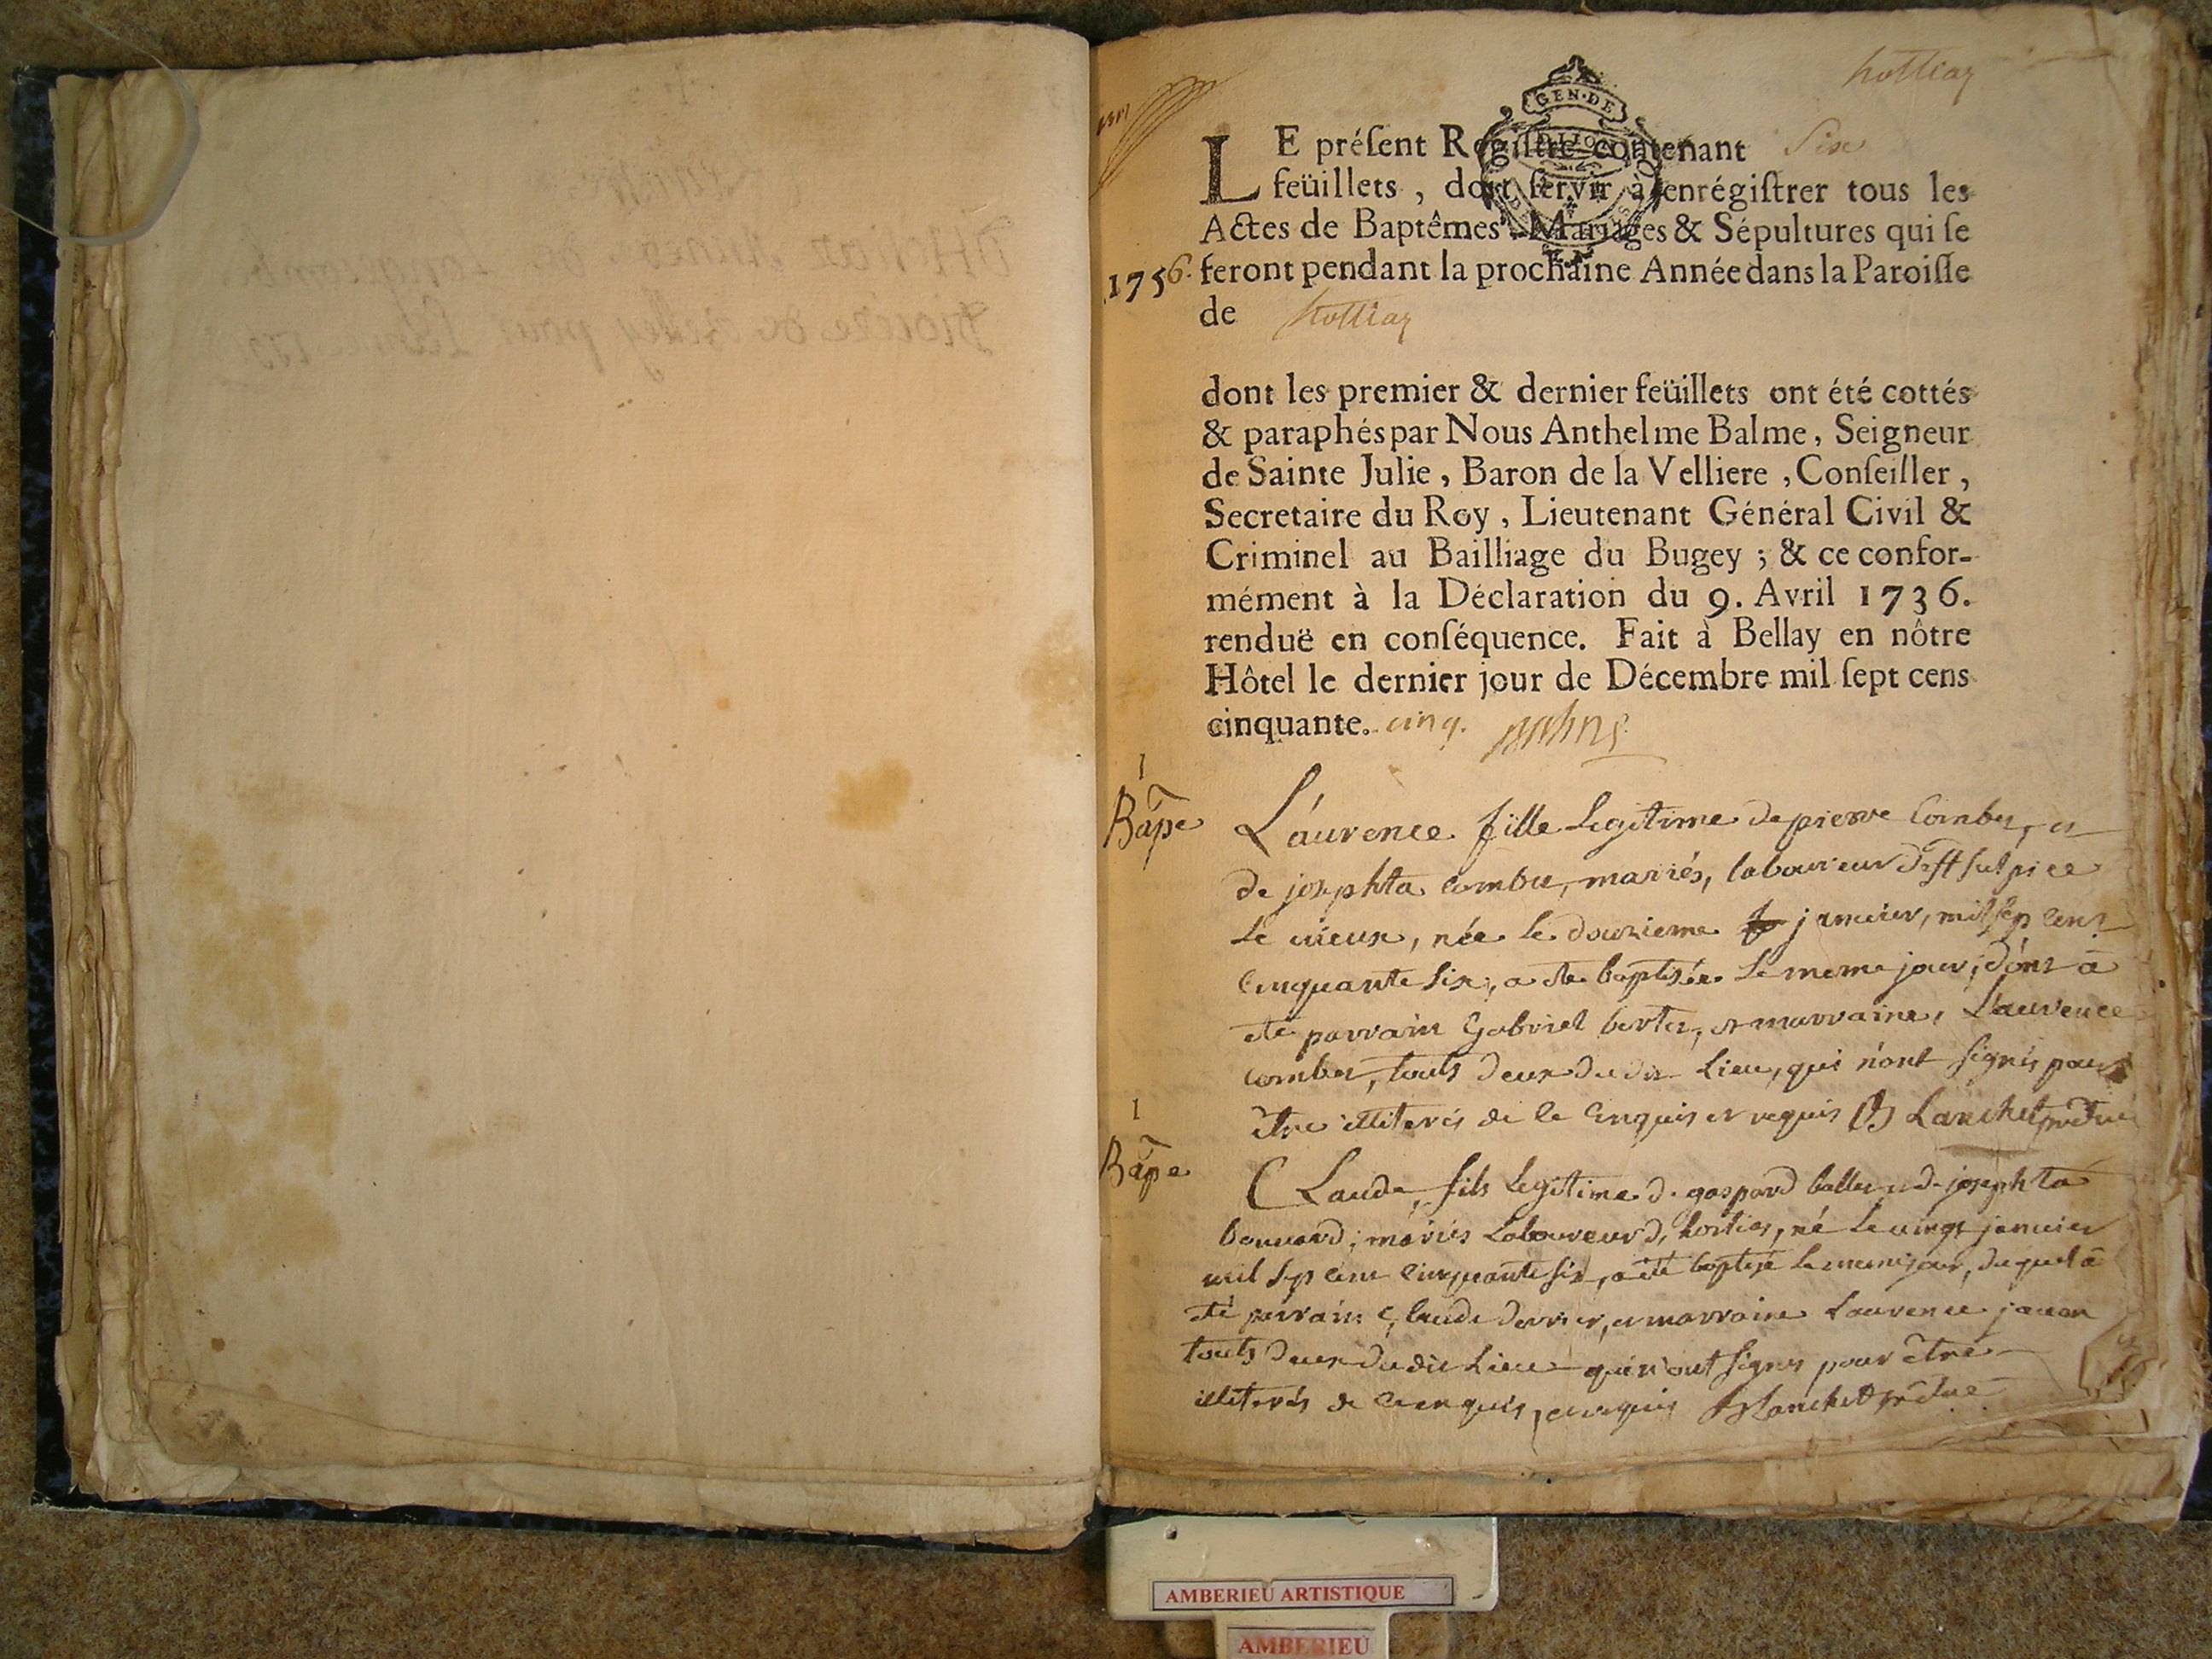 hottiaz
GEN·DE
DIJON
LE préſent Regiſtre contenant Six
feüillets, doit ſervir à enrégiſtrer tous les
Actes de Baptêmes, Mariages & Sépultures qui ſe
1756. feront pendant la prochaine Année dans la Paroiſſe
de hottiaz
dont les premier & dernier feüillets ont été cottés
& paraphés par Nous Anthelme Balme, Seigneur
de Sainte Julie, Baron de la Velliere, Conſeiller,
Secretaire du Roy, Lieutenant Général Civil &
Criminel au Bailliage du Bugey; & ce confor-
mément à la Déclaration du 9. Avril 1736.
renduë en conſéquence. Fait à Bellay en nôtre
Hôtel le dernier jour de Décembre mil ſept cens
cinquante. cinq.
1
Bape
Laurence fille Legitime de pierre Combet, et
de josephta combet, mariés, laboureur de st sulpice
Le vieux, née le douzieme janvier, mil sep cent
Cinquante Six, a ete baptisée Le meme jour, dont a
ete parrain Gabriel bertet, et marraine, Laurence
combet, touts deux du dit Lieu, qui n'ont signés pour
être illiterés de ce enquis et requis Blanchet
1
Bape
CLaude, fils Legitime de gaspard ballet et de josephta
bonnard, mariés Laboureur d, hostias, né Le vingt janvier
mil sep cent cinquante six, a été baptisé le meme jour, duquel a
été parrain Claude, et marraine Laurence
touts deux du dit Lieu qui n'ont signés pour être
illiterés de ce enquis, et requis Blanchet
AMBERIEU ARTISTIQUE
AMBERIEU